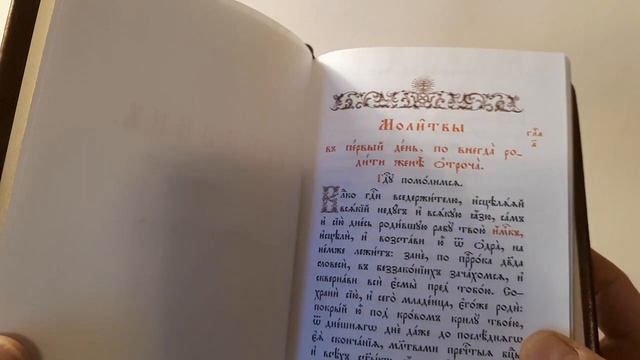 Моли́твы
въ пе́рвый де́нь, по внегда̀ ро-
ди́ти женѣ̀ ѻ҆троча̀.
Гдⷭ҇у помо́лимсѧ.
влⷣко гдⷭ҇и вседержи́телю, и҆сцѣлѧ́ѧй
всѧ́кїй неду́гъ и҆ всѧ́кую ꙗ҆́зю, са́мъ
и҆ сїю̀ дне́сь роди́вшую рабу̀ твою̀ и҆́мкъ,
и҆сцѣлѝ, и҆ возста́ви ю҆̀ ѿ ѻ҆дра̀, на
не́мже лежи́тъ: занѐ, по прⷪ҇ро́ка дв҃да
словесѝ, въ беззако́нїихъ зача́хомсѧ, и҆
скве́рнави всѝ є҆смы̀ пред̾ тобо́ю. Со-
хранѝ сїю̀, и҆ сего̀ младе́нца, є҆го́же родѝ:
покры́й ю҆̀ под̾ кро́вомъ крилꙋ̀ твоє́ю,
ѿ дне́шнѧгѡ днѐ да́же до послѣ́днѧгѡ
є҆ѧ̀ сконча́нїѧ, мл҃твами пречⷭ҇тыѧ бцⷣы
и҆ всѣ́хъ